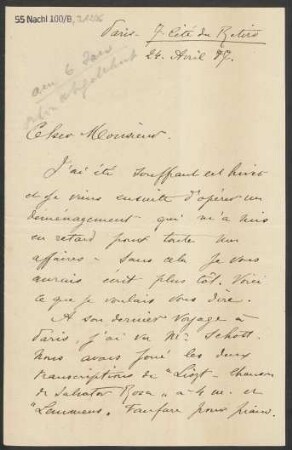 55 Nachl 100/B,
Paris. 7 Cité du Retiro
24. Avril 97.
am 6 Jan
abgelehnt
Cher Monsieur.
J'ai été souffrant cet hiver
et je viens ensuite d'opérer un
déménagement qui m'a mis
en retard pour toute mes
affaires - Sans cela je vous
aurais écrit plus tôt. Voici
ce que je voulais vous dire.
A son dernier voyage à
Paris, j'ai vu Mr. Schott.
Nous avons joué les deux
transcriptions de "Liszt - Chanson
de Salvator Rosa" à 4 m. et
"Lemmens". Fanfare pour piano.